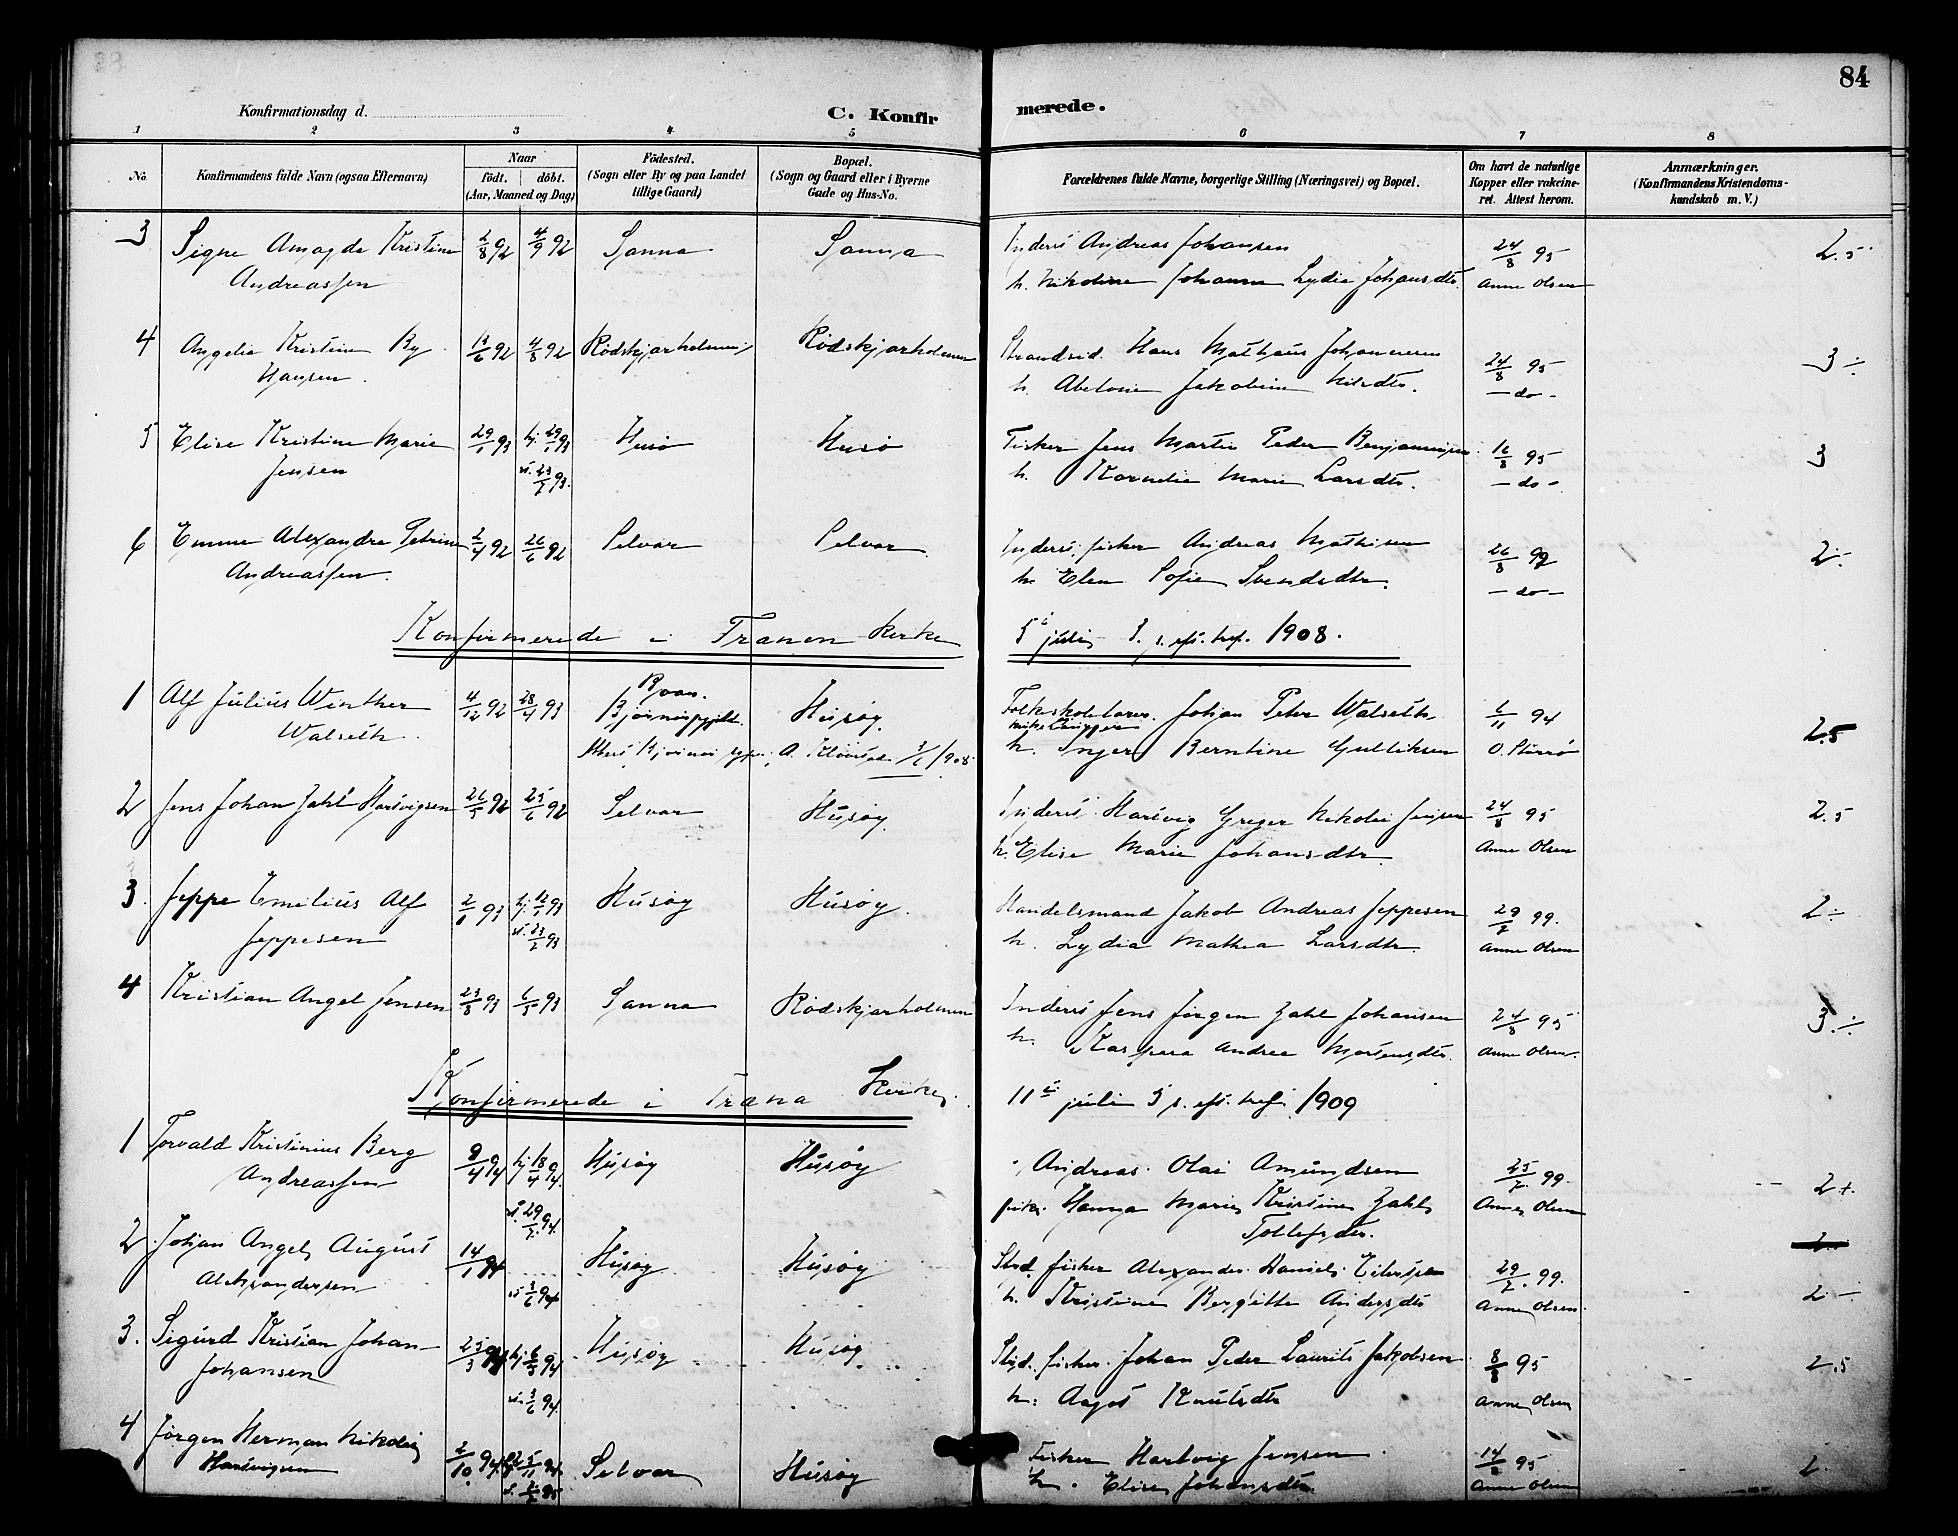 84
Konfirmationsdag d.
C. Konfir
merede.
1 2 3 4 5 6 7 8
No.
Konfirmandens fulde Navn (ogsaa Efternavn)
Naar
födt. döbt.
(Aar, Maaned og Dag)
Födested.
(Sogn eller By og paa Landet
tillige Gaard)
Bopæl.
(Sogn og Gaard eller i Byerne
Gade og Hus-No.
Forældrenes fulde Navne, borgerlige Stilling (Næringsvei) og Bopæl.
Om havt de naturlige
Kopper eller vakcine-
ret. Attest herom.
Anmærkninger.
(Konfirmandens Kristendoms-
kundskab m. V.)
3 Signe Amagda Kristine 2/8 92 4/9 92 Sanna Sanna Inders Andreas Johansen 24/8 95 2.5
Andreassen h. Nikoline Johanna Lydia Johansdtr. Anne Olsen
4 Angelia Kristine By 4/8 92 Rödskjærholmen Rödskjærholmen Strandsid. Hans Mathæus Johannesen 24/8 95 3 ÷
Hansen h. Abelone Jakobine Nilsdtr. - do -
5 Elise Kristine Marie 29/1 93 hj. 29/1 93 Husö Husö Fisker Jens Martin Peder Benjaminsen 16/8 95 3
Jensen st. 23/7 93. h. Kornelia Marie Larsdtr. - do -
6 Emma Alexandra Petrine 2/4 92 26/6 92 Selvær Selvær Inders. fisker Andreas Mathisen 26/8 99 2 ÷
Andreassen h. Elen Sofie Svendsdtr. - do -
Konfirmerede i Trænen Kirke 5te juli 3. s. eft. tref. 1908.
1 Alf Julius Winther 4/12 92 28/4 93 Roan. Husøy Folkeskolelærer Johan Peter Walseth 6/11 94 2.5
Walseth Bjørnør h. Inger Berntine Gulliksen
1908
2 Jens Johan Zahl Hartvigsen 26/5 92 25/6 92 Selvær Husøy Inders Hartvig Greger Nikolai Jensen 24/8 95 2.5
h. Elise Marie Johansdtr. Anne Olsen
3. Jeppe Emelius Alf 2/1 93 hj. 12/1 93 Husøy Husøy. Handelsmand Jakob Andreas Jeppesen 29/7 99. 2 ÷
Jeppesen st. 23/7 93 h. Lydia Mathea Larsdtr. Anne Olsen
4 Kristian Angel Jensen 23/8 93 6/5 93 Sanna Rödskjærholmen Inders Jens Jörgen Zahl Johansen 24/8 95 3. ÷
h. Kaspara Andrea Mortensdtr. Anne Olsen.
Konfirmerede i Træna Kirke. 11te juli 5 s. eft. tref. 1909
1 Torvald Kristinius Berg 9/4 94 hj 18/4 94. Husøy Husøy Andreas Olai Amundsen 25/7 99. 2 +.
Andreassen st. 29/7 94. Hanna Marie Kristine Zahl Anne Olsen
Tollefsdtr.
2 Johan Angel August 14/1 94 Husøy Husøy Std. fisker Alexander Daniel Eilertsen 29/7. 99. 2 -
Aleksandersen st 3/6 94 h. Kristine Bergitte Andersdtr Anne Olsen
3. Sigurd Kristian Johan 25/3 94 hj 6/5 94 Husøy Husøy Std. fisker. Johan Peder Laurits Jakobsen 8/8 95 2.5
Johansen st. 3/6 94. h. Aagot Knutsdtr Anne Olsen
4 Jørgen Herman Nikolai 2/10 94. Selvær Husøy Fisker Hartvig Jensen 14/8 95 2.
Hartvigsen h. Elise Johansdtr. Anne Olsen